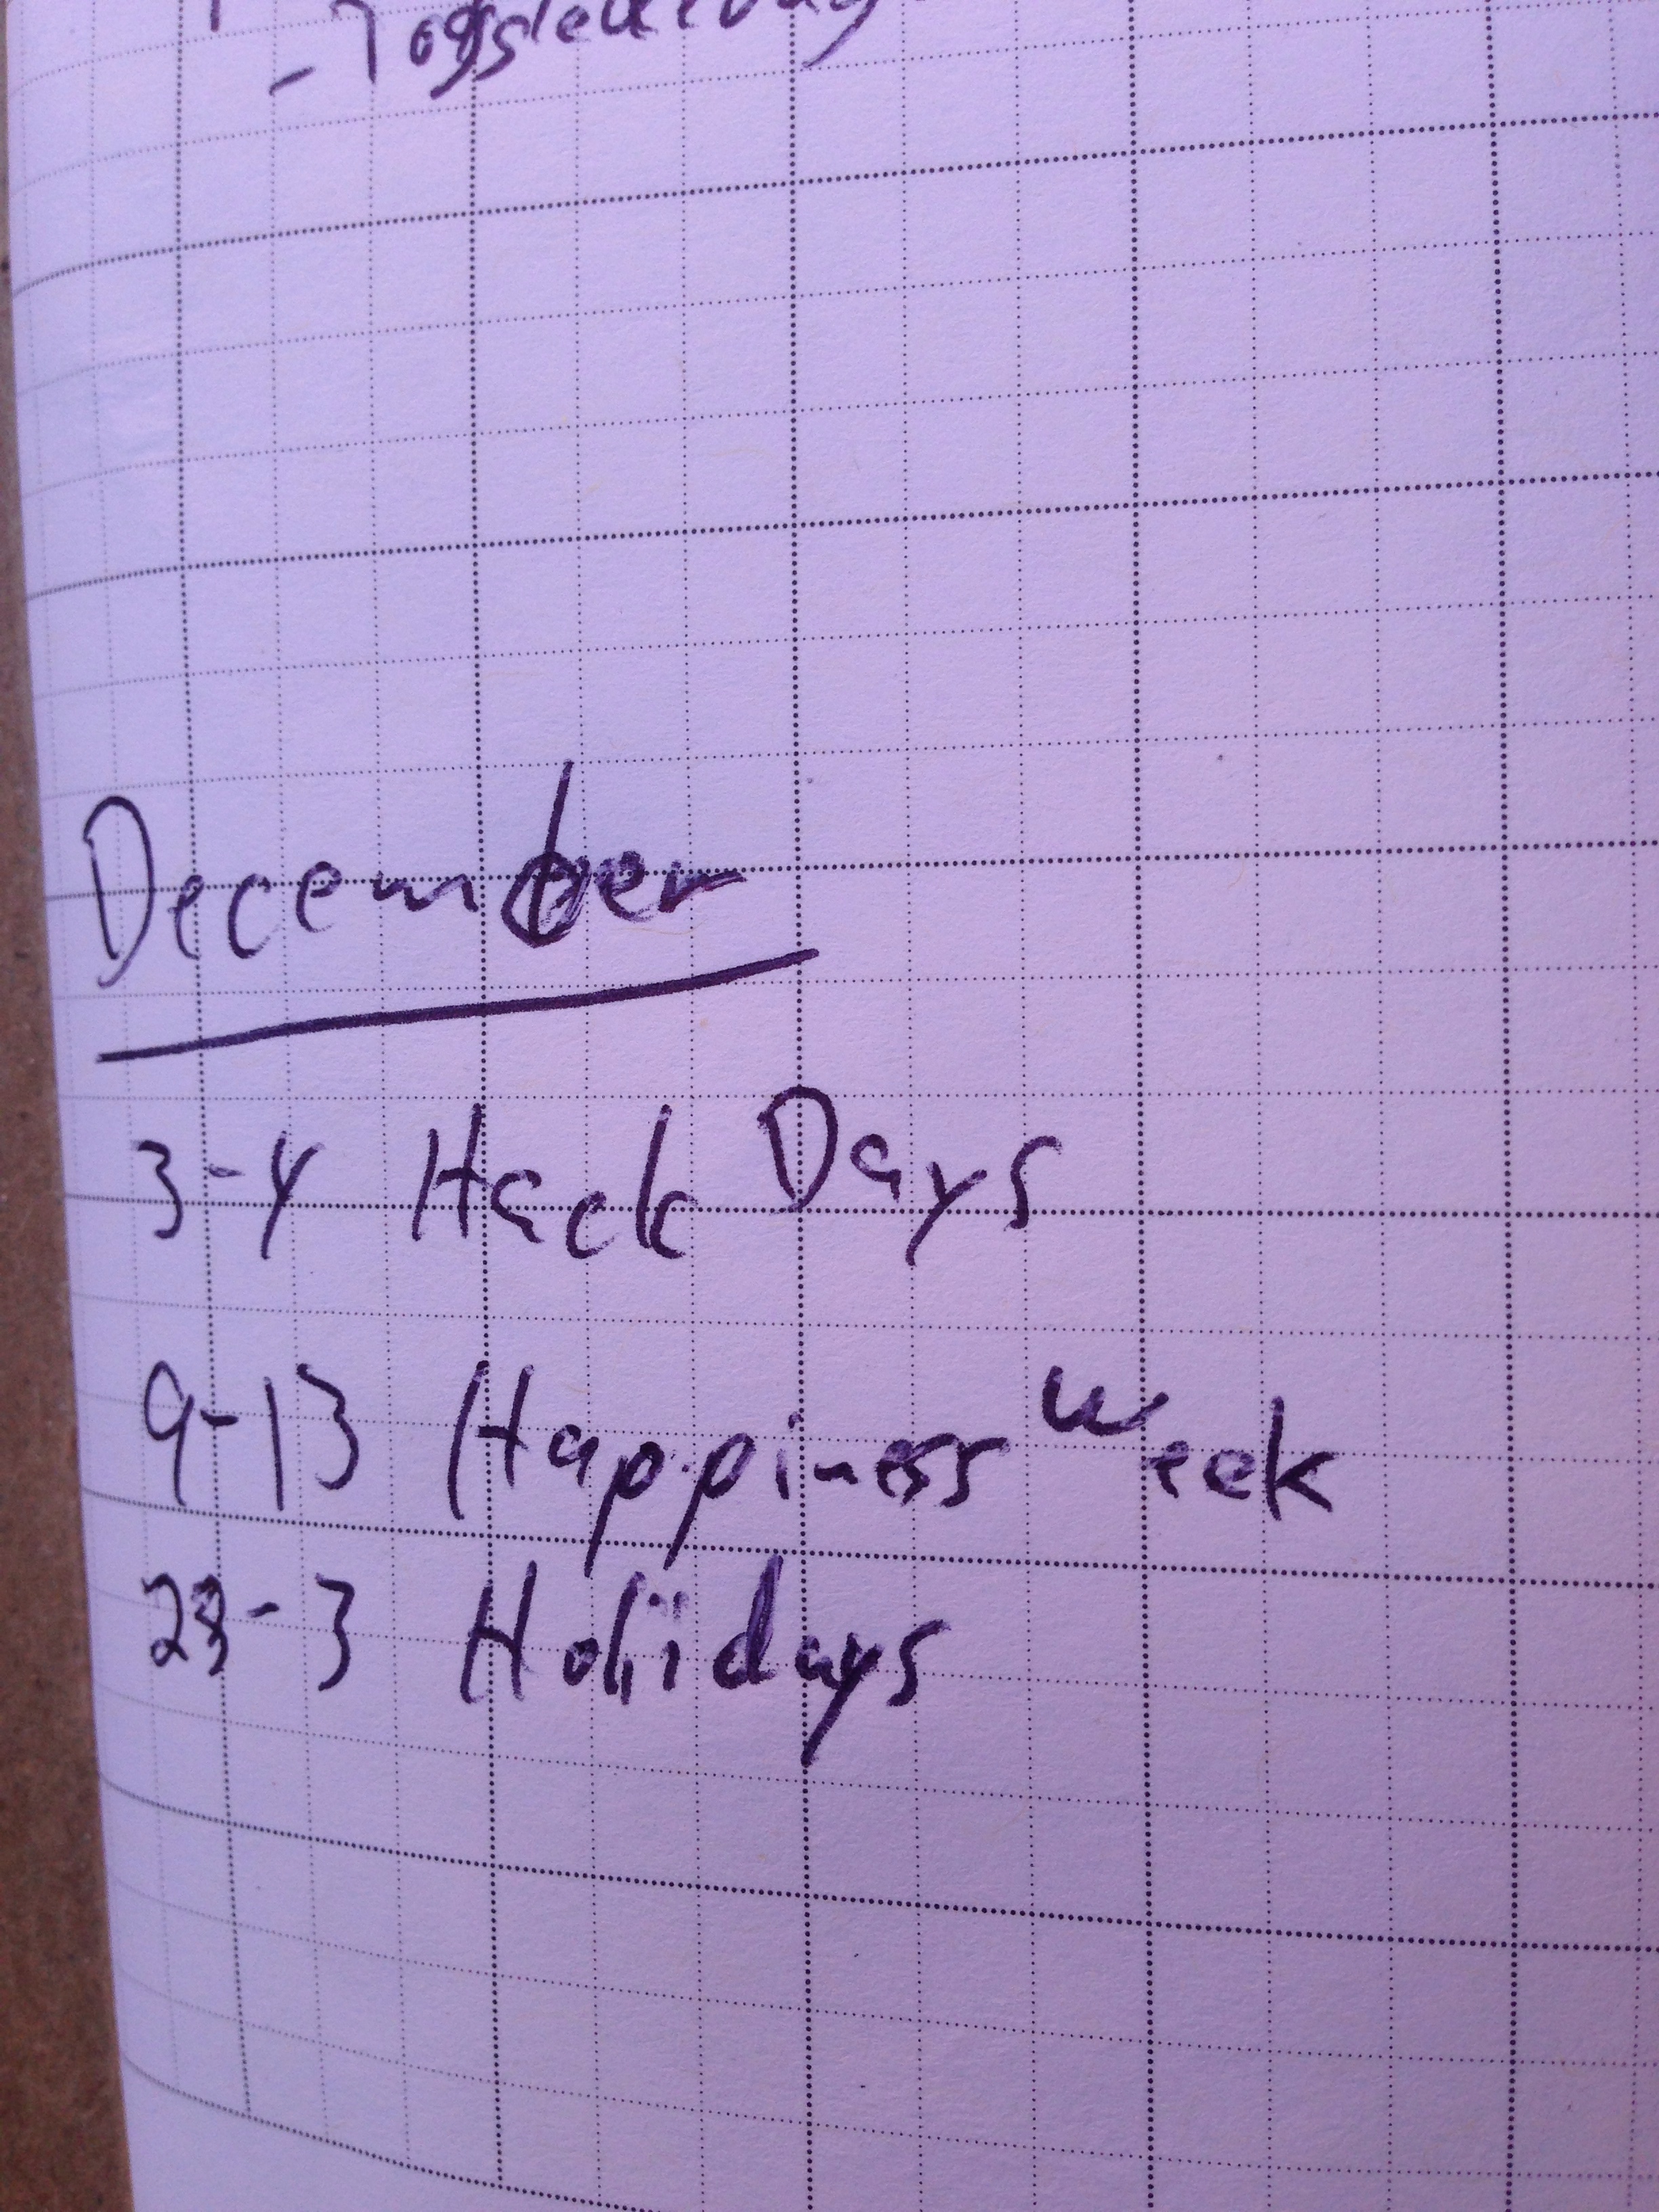 December
3-4 Hack Days
9-13 Happiness Week
28-3 Holidays